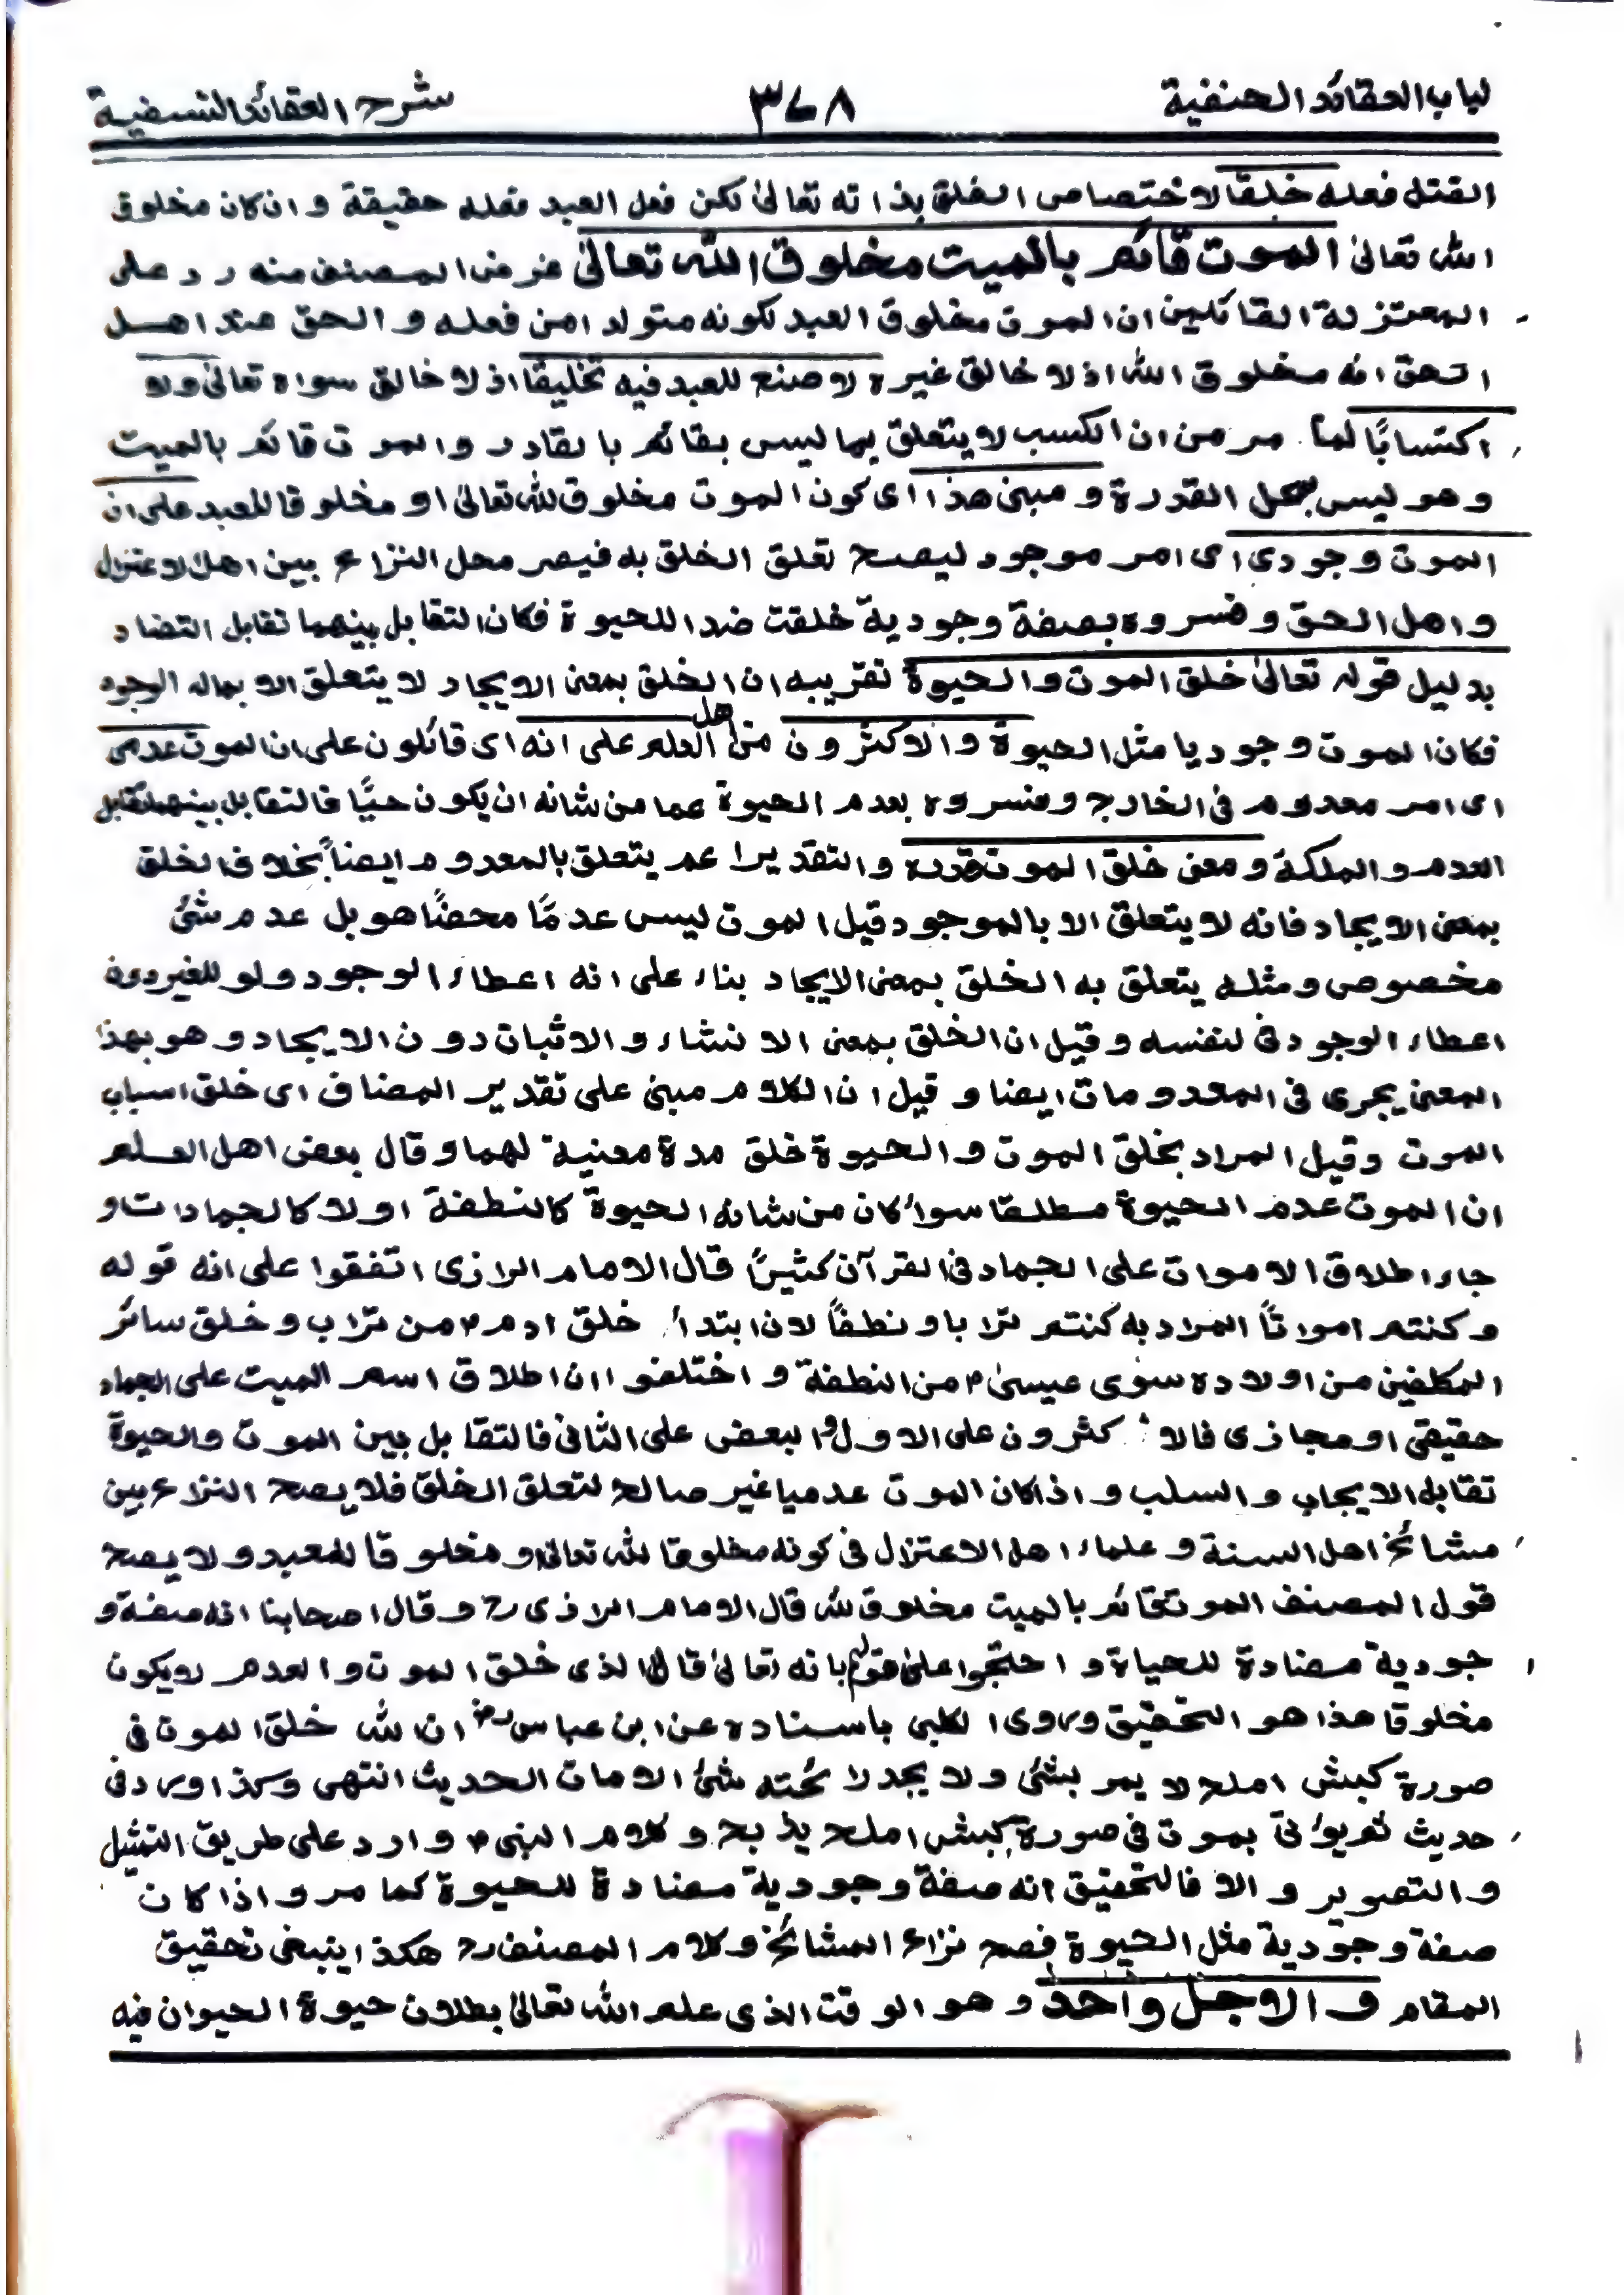 لباب العقائد الحنفية ٣٧٨ شرح العقائد النسفية
القتل فعله خلقا لاختصاص الخلق بذاته تعالىٰ لكن فعل العبد فعله حقيقة و ان كان مخلوق
الله تعالىٰ الموت قائم بالميت مخلوق الله تعالىٰ غرض المصنف منه رد على
المعتزلة القائلين ان الموت مخلوق العبد لكونه متولدا من فعله و الحق عند اهل
الحق انه مخلوق الله اذ لا خالق غيره لا صنع للعبد فيه تخليقًا اذ لا خالق سواه تعالىٰ ولا
اكتسابًا لما مر من ان الكسب لا يتعلق بما ليس بقائم بالقادر و الموت قائم بالميت
و هو ليس محل القدرة و مبنى هذا اى كون الموت مخلوق لله تعالىٰ او مخلوقا للعبد على ان
الموت وجودى اى امر موجود ليصح تعلق الخلق به فيصر محل النزاع بين اهل الاعتزال
و اهل الحق و فسروه بصفة وجودية خلقت ضدا للحيوة فكان التقابل بينهما تقابل التضاد
بدليل قوله تعالىٰ خلق الموت و الحيوة تقريبه ان الخلق بمعنى الايجاد لا يتعلق الا بماله الوجود
فكان الموت وجوديا مثل الحيوة و الاكثرون من اهل العلم على انه اى قائلون على ان الموت عدمى
اى امر معدوم فى الخارج و فسروه بعدم الحيوة عما من شانه ان يكون حيًّا فالتقابل بينهما تقابل
العدم و الملكة و معنى خلق الموت قدره و التقدير اعم يتعلق بالمعدوم ايضاً بخلاف الخلق
بمعنى الايجاد فانه لا يتعلق الا بالموجود قيل الموت ليس عدمًا محضًا هو بل عدم شئ
مخصوص و مثله يتعلق به الخلق بمعنى الايجاد بناء على انه اعطاء الوجود و لو للغير دون
اعطاء الوجود فى لنفسه و قيل ان الخلق بمعنى الانشاء و الاثبات دون الايجاد و هو بهذا
المعنى يجرى فى المعدومات ايضا و قيل ان الكلام مبنى على تقدير المضاف اى خلق اسباب
الموت و قيل المراد بخلق الموت و الحيوة خلق مدة معنية لهما و قال بعض اهل العلم
ان الموت عدم الحيوة مطلقا سواء كان من شانه الحيوة كالنطفة اولا كالجمادات و
جاء اطلاق الاموات على الجماد فى القرآن كثيرًا قال الامام الرازى اتفقوا على انه قوله
و كنتم امواتًا المراد به كنتم ترابا و نطفًا لان ابتداء خلق ادمؑ من تراب و خلق سائر
المكلفين من اولاده سوى عيسىٰؑ من النطفة و اختلفوا ان اطلاق اسم الميت على الجماد
حقيقى او مجازى فالاكثرون على الاول و البعض على الثانى فالتقابل بين الموت و الحيوة
تقابل الايجاب و السلب و اذا كان الموت عدميا غير صالح لتعلق الخلق فلا يصح النزاع بين
مشائخ اهل السنة و علماء اهل الاعتزال فى كونه مخلوقا لله تعالىٰ او مخلوقا للعبد و لا يصح
قول المصنف الموت قائم بالميت مخلوق لله قال الامام الرازىؒ و قال اصحابنا انه صفة و
جودية مضادة للحياة و احتجوا على قولهم بانه تعالىٰ قال الذى خلق الموت و العدم لا يكون
مخلوقا هذا هو التحقيق و روى الكلبى باسناده عن ابن عباسؓ ان الله خلق الموت فى
صورة كبش املح لا يمر بشئ و لا يجد لا ئحته شئ الا مات الحديث انتهى و كذا ورد فى
حديث بموت فى صورة كبش املح يذبح و كلام النبىؐ وارد على طريق التمثيل
و التصوير و الا فالتحقيق انه صفة وجودية مضادة للحيوة كما مر و اذا كان
صفة وجودية مثل الحيوة فصح نزاع المشائخ و كلام المصنفؒ هكذا ينبغى تحقيق
المقام و الاجل واحد و هو الوقت الذى علم الله تعالىٰ بطلان حيوة الحيوان فيه